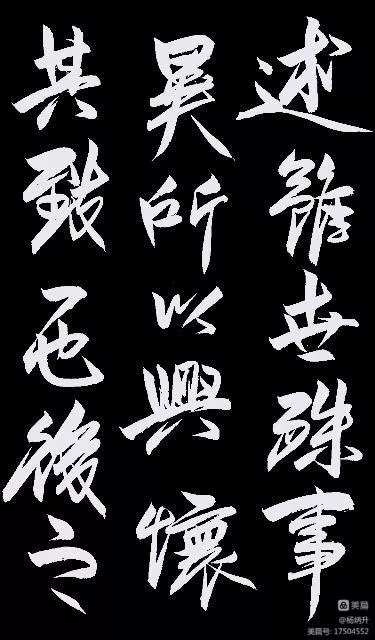 述雖世殊事
異所以興懷
其致一也後之
美篇
@杨炳升
美篇号: 17504552